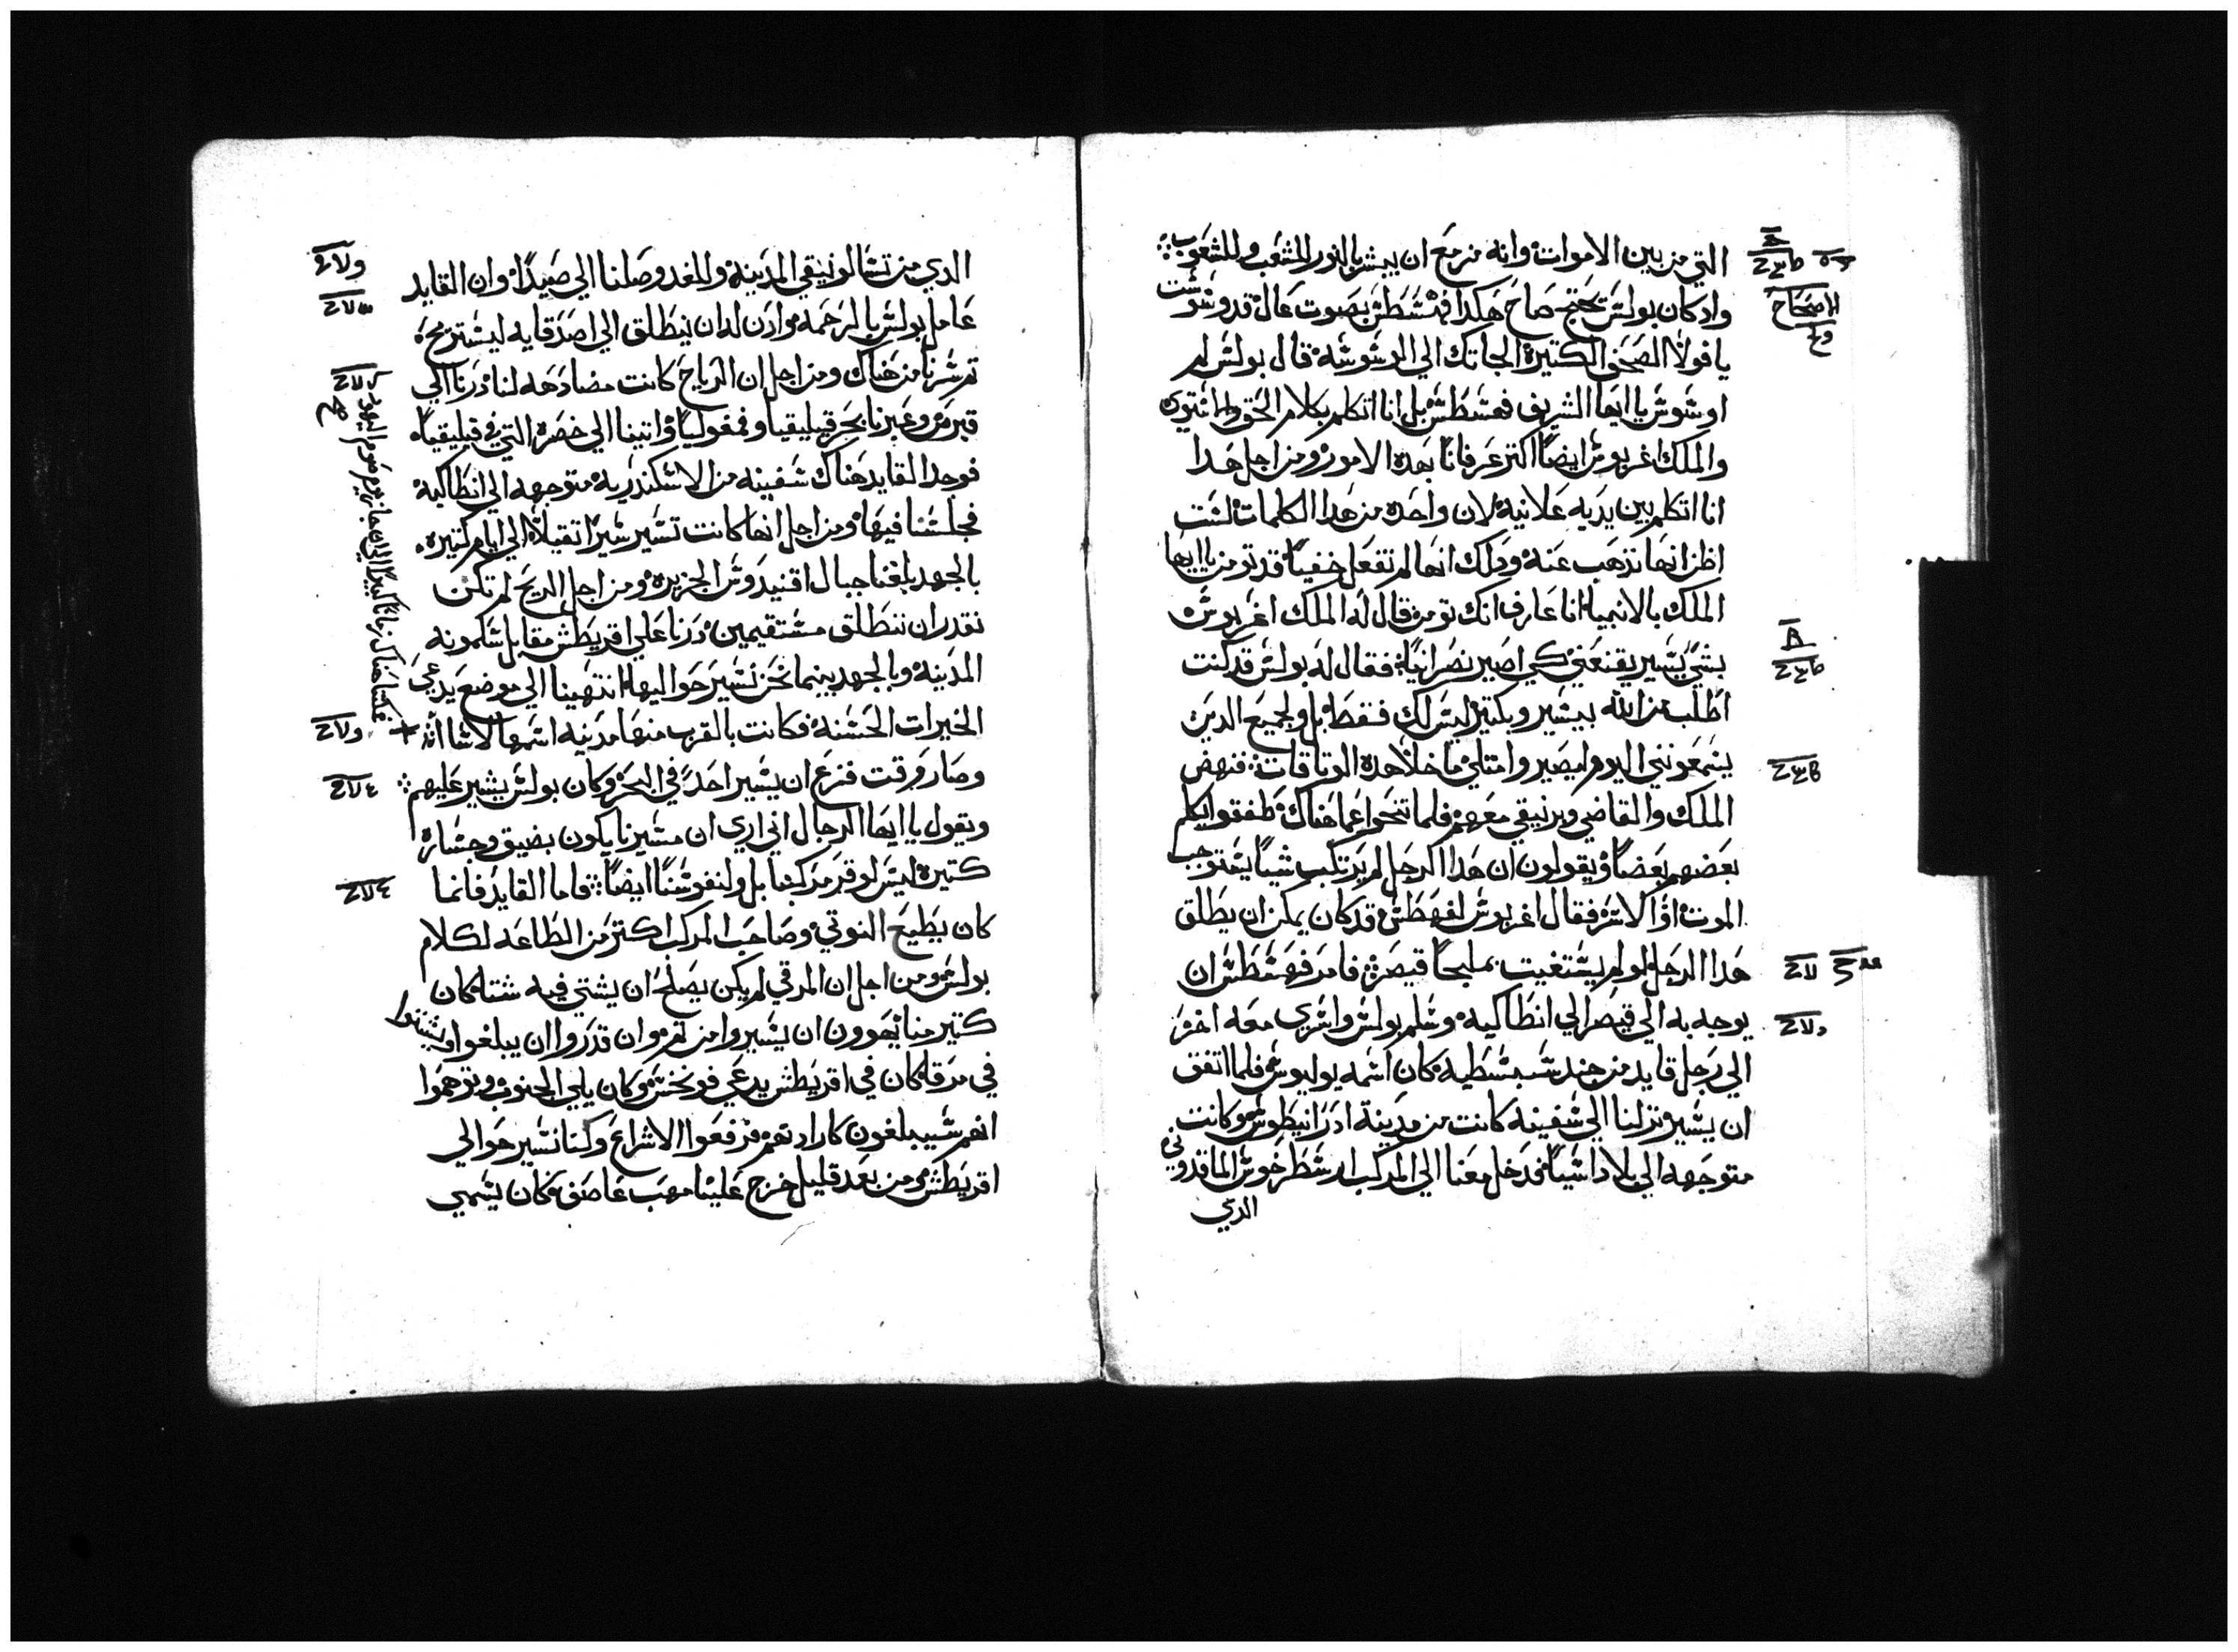 التي من بين الاموات وانه مزمع ان يبشر بالنور للشعب وللشعوب
واد كان بولس يحتج صاح هكدا فهسطس بصوت عال قد وسوست
يا فولا الصحف الكتيره الجاتك الي الوسوسه قال بولس لم
اوسوس يا ايها الشريف فهسطس بل انا اتكلم بكلام الحق
والملك اغربوس ايضا اكتر عرفانا بهده الامور ومن اجل هدا
انا اتكلم بين يديه علانيه لان واحده من هدا الكلمات لست
اظن انها تدهب عنه ودلك انها لم تفعل خفيا قد تومن يا ايها
الملك بالانبيا انا عارف انك تومن قال له الملك اغربوس
بشي يسير يقنعني كي اصير نصرانيا فقال له بولس قد كنت
اطلب من الله بيسير وبكتير ليس لك فقط بل ولجميع الدين
يسمعونني اليوم ان يصير وامتلي ما خلا هده الوتاقات فنهض
الملك والقاضي وبرنيقي معهم فلما تنحوا عما هناك طفقوا يكلم
بعضهم بعضا ويقولون ان هدا الرجل لم يرتكب شيا يستوجب
الموت او الاسر فقال اغربوس لفهسطس قد كان يمكن ان يطلق
هدا الرجل لو لم يستغيت بملجا قيصر فامر فهسطس ان
يوجه به الي قيصر الي انطاكيه وسلم بولس واسري معه اخر
الي رجل قايد من جند سبسطيه كان اسمه يوليوس فلما اتفق
ان يسير نزلنا الي سفينه كانت من مدينة ادرانيطوس وكانت
متوجهه الي بلاد اسيا فدخل معنا الي المركب ارسطرخوس الماقدوني
الدي
الاصحاح
الدي من تسالونيقي المدينه وللغد وصلنا الي صيدا وان القايد
عامل بولس بالرحمه وادن له ان ينطلق الي اصدقايه ليستريح
تم سرنا من هناك ومن اجل ان الرياح كانت مضادهه لنا درنا الي
قبرص وعبرنا بحر قيليقيا وفمفوليا واتينا الي التي في قيليقيا
فوجد القايد هناك سفينه من الاسكندريه متوجهه الي انطاكيه
فجلسنا فيها ومن اجل انها كانت تسير سيرا تقيلا الي ايام كتيره
بالجهد بلغنا جبال اقنيدوس الجزيره ومن اجل الريح لم تكن
نقدر ان ننطلق مستقيمين درنا علي اقريطس مقابل سلمونه
المدينه وبالجهد بينما نحن نسير حواليها انتهينا الي موضع يدعي
الخيرات الحسنه فكانت بالقرب منها مدينه اسمها لاشا
وصار وقت فزع ان يسير احد في البحر وكان بولس يشير عليهم
ويقول يا ايها الرجال اني اري ان مسيرنا يكون بضيق وخساره
كتيره ليس لوقر مركبنا بل ولنفوسنا ايضا فاما القايد فانما
كان يطيع النوتي وصاحب المركب اكتر من الطاعه لكلام
بولس ومن اجل ان المرقي لم يكن يصلح ان يشتي فيه شتا كان
كتير منا يهوون ان يسيروا من تم وان قدروا ان يبلغوا ويشتوا
في مرقا كان في اقريطس يدعي فونخس وكان يلي الجنوب وتوهموا
انهم سيبلغون كارادتهم فرفعوا الاشراع وكنا نسير حوالي
اقريطس ومن بعد قليل خرج علينا مهب عاصف كان يسمي
فمكتنا هناك زمانا كبيرا الي ان جاز يوم صوم اليهود